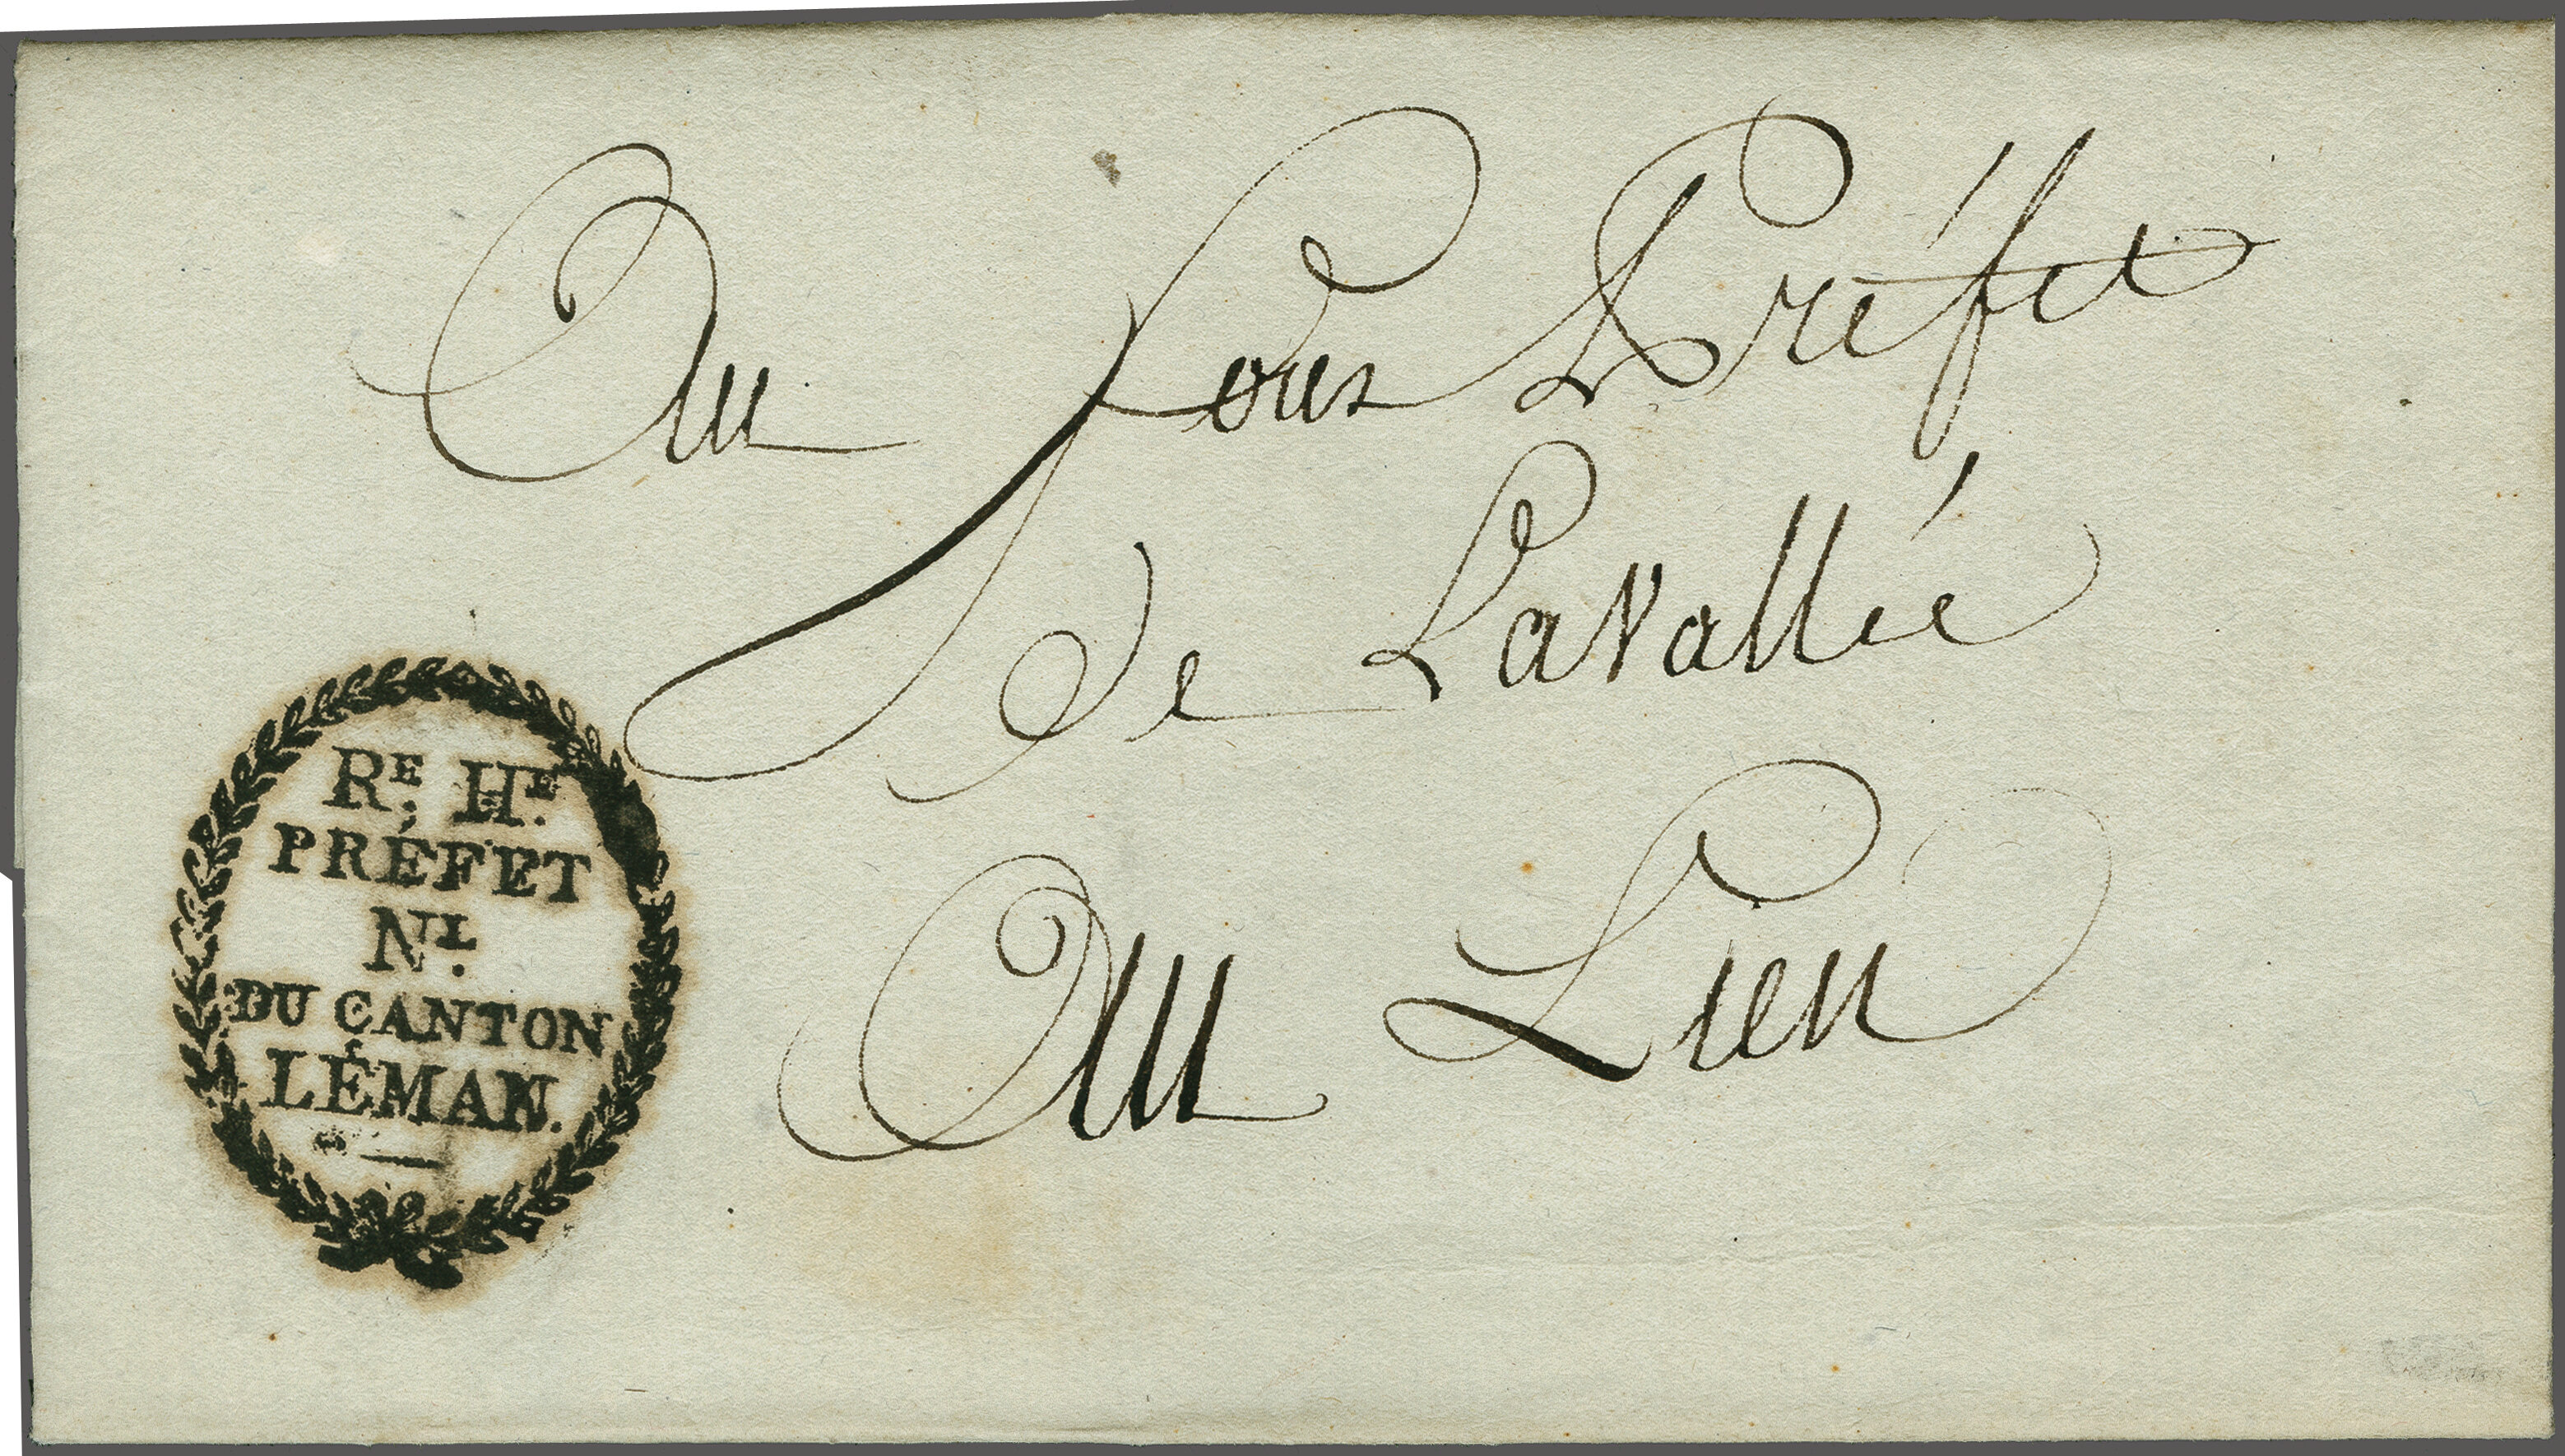 Au Sous Préfet
de Lavallée
Au Lieu
RE. HE.
PRÉFET
NL.
DU CANTON
LÉMAN.